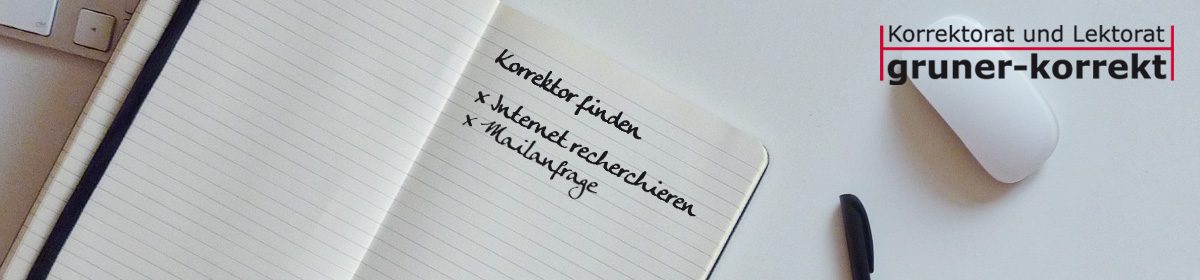 Korrektor finden
x Internet recherchieren
x Mailanfrage
Korrektorat und Lektorat
gruner-korrekt